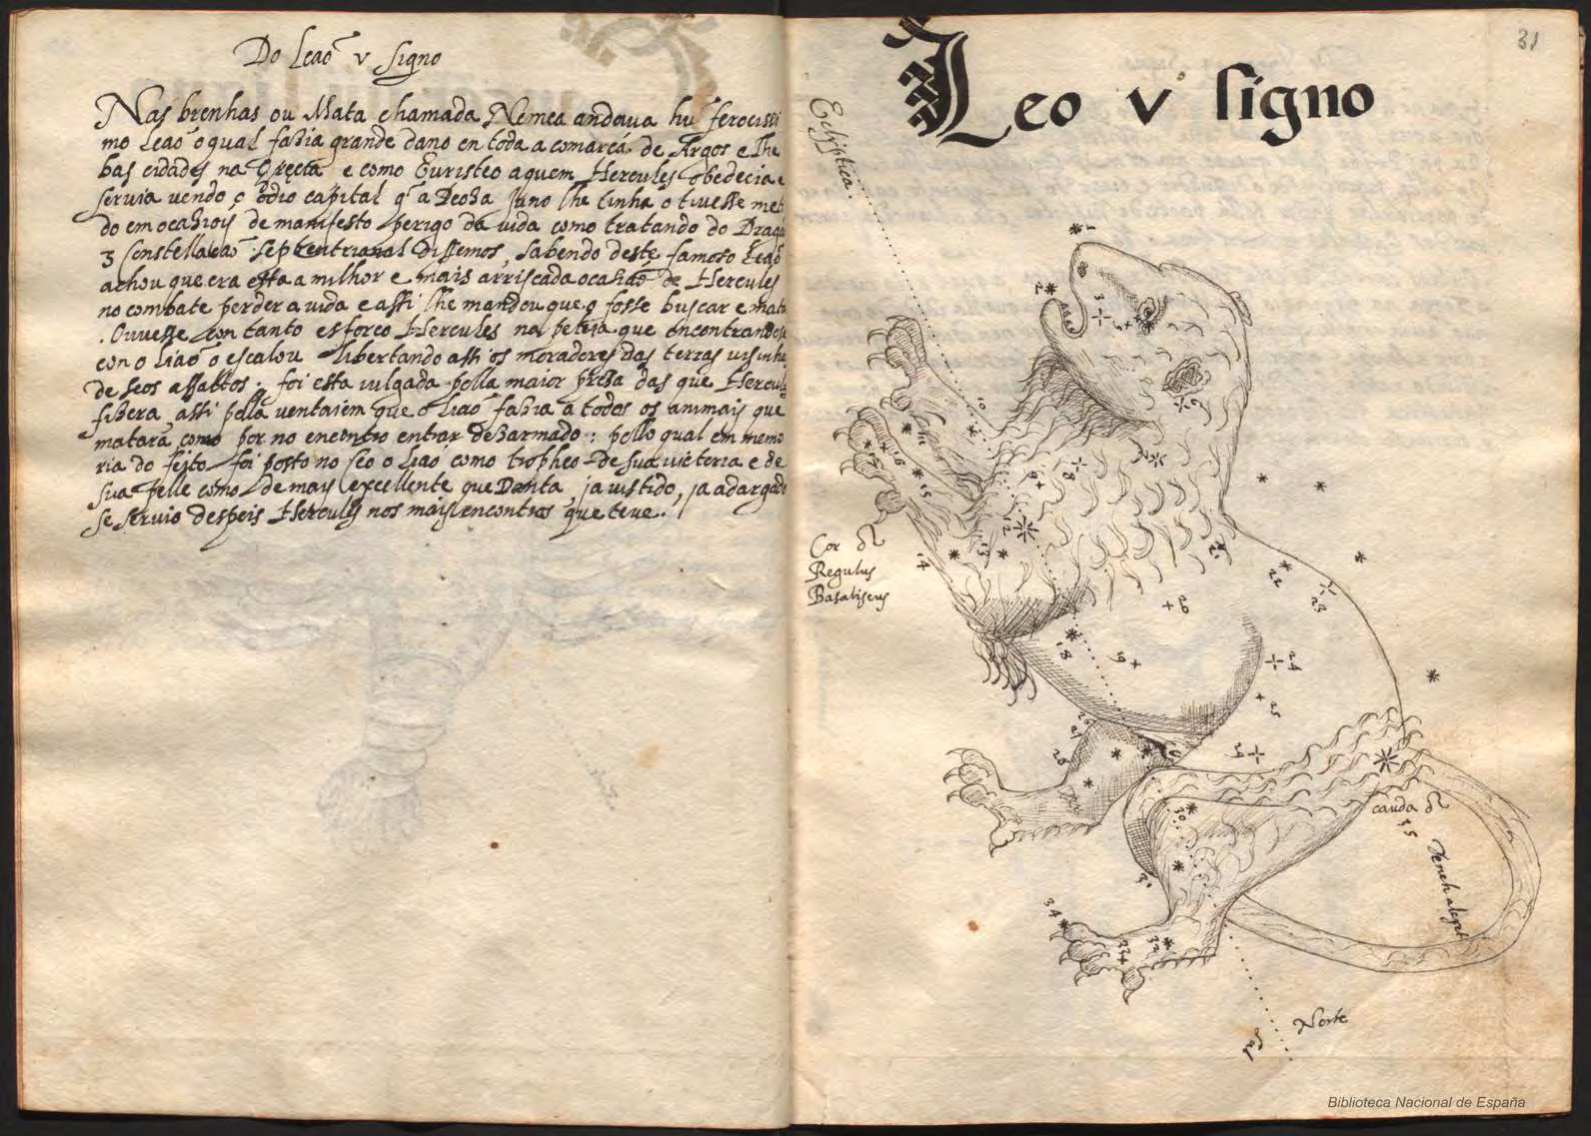 Do Leaõ v signo
Nas brenhas ou Mata chamada Nemea andaua hũ ferocissi
mo Leaõ o qual fazia grande dano en toda a comarca de Argos e The
bas cidades na Grecia e como Euristeo a quem Hercules obedecia e
seruia uendo o odio capital q̃ a Deoza Juno lhe tinha o tiuesse met
do em ocaziois de manifesto perigo da uida como tratando do Drago
3 Constellacaõ septentrional dissemos, sabendo deste famoso Leaõ
achou que era esta a milhor e mais arriscada ocasiaõ de Hercules
no combate perder a uida e assi lhe mandou que o fosse buscar e mata
. Ouuesse con tanto esforco Hercules na peleia que encontrandose
con o Liaõ o escalou libertando assi os moradores das terras uisinha
de seos assaltos; foi esta iulgada pella maior preza das que Hercul
fizera, assi pella uentaiem que o liaõ fazia a todos os animais que
matara, como por no encontro entrar dezarmado: pello qual em memo
ria do feito foi posto no seo o liaõ como tropheo de sua uictoria e de
sua pelle como de mais excellente que Danta, ja uistido, ja adargado
se seruio despois Hercules nos mais encontros que teue.
31
Leo v signo
Ecliptica
1
2
3
5
6
10
8
9
16
15
12
13
14
Cor ♌
Regulus
Basaliscus
21
22
23
20
18
19
24
25
26
27
28
cauda ♌
35
Deneb alezet
30
34
33
32
Norte
Sul
Biblioteca Nacional de España